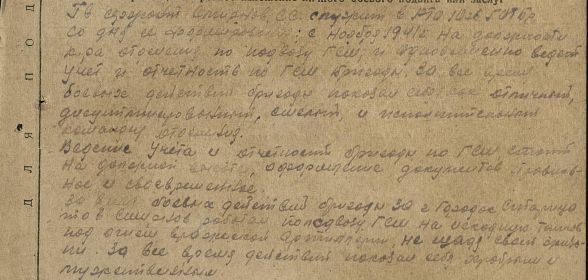 Гв сержант Смирнов С.С. служит в РТО 10гв ГИТбр
со дня ее формирования, с Ноября 1941г на должности
к-ра отделения по подвозу ГСМ, и одновременно ведет
учет и отчетность по ГСМ бригады, за все время
боевых действий бригады показал себя как отличный,
дисциплинированный, смелый, и исполнительный
командир отделения.
Ведение учета и отчетности бригады по ГСМ стоит
на должной высоте, оформление документов
ное и своевременное.
За боевых действий бригады за г Городок Ситарица
т-в Смирнов работал по подвозу ГСМ на исходную танков
под огнем вражеской артиллерии, не щадя своей
ни. За все время действий показал себя и
мужественным.
Д Л Я П О Д